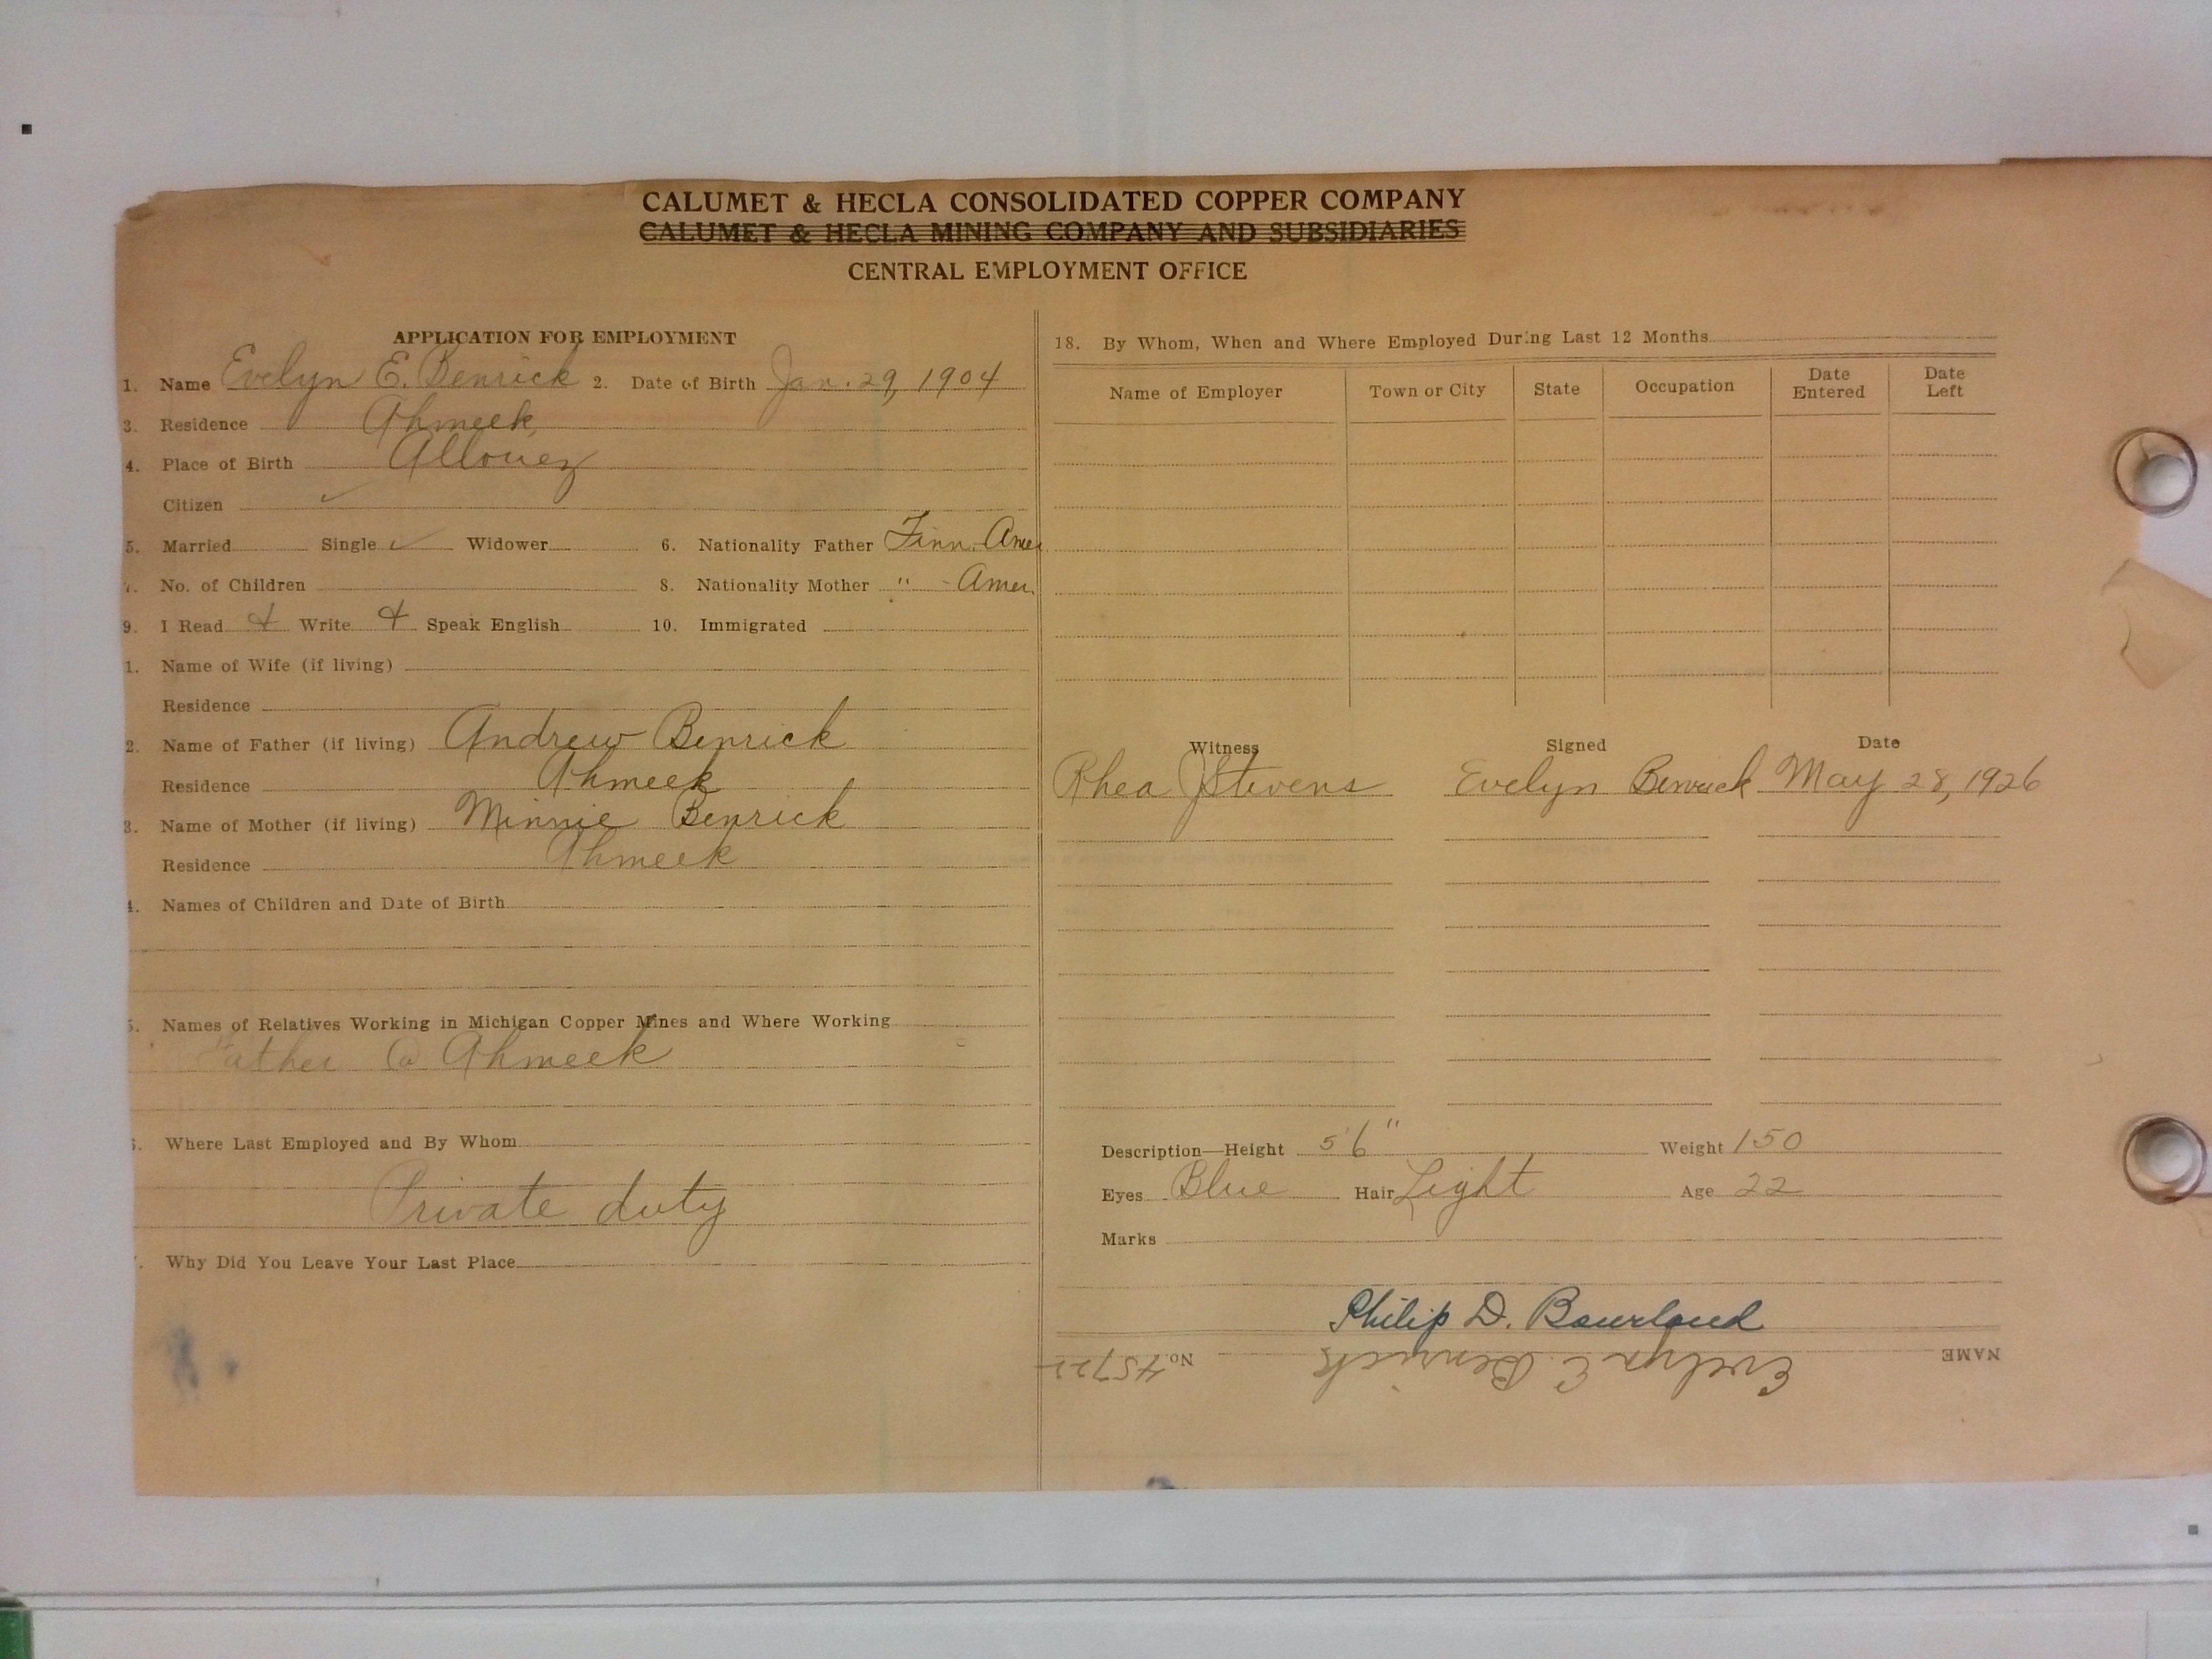 CALUMET & HECLA CONSOLIDATED COPPER COMPANY
CALUMET & HECLA MINING COMPANY AND SUBSIDIARIES
CENTRAL EMPLOYMENT OFFICE
APPLICATION FOR EMPLOYMENT
1. Name Evelyn E. Benrick 2. Date of Birth Jan. 29, 1904
3. Residence Ahmeek
4. Place of Birth Allouez
Citizen ✓
5. Married Single ✓ Widower 6. Nationality Father Finn. Amer
7. No. of Children 8. Nationality Mother " - Amer.
9. I Read & Write & Speak English 10. Immigrated
1. Name of Wife (if living)
Residence
2. Name of Father (if living) Andrew Benrick
Residence Ahmeek
3. Name of Mother (if living) Minnie Benrick
Residence Ahmeek
4. Names of Children and Date of Birth
5. Names of Relatives Working in Michigan Copper Mines and Where Working
Father @ Ahmeek
6. Where Last Employed and By Whom
Private duty
Why Did You Leave Your Last Place
18. By Whom, When and Where Employed During Last 12 Months
Name of Employer Town or City State Occupation Date Entered Date Left
Witness Signed Date
Rhea J Stevens Evelyn Benrick May 28, 1926
Description—Height 5'6" Weight 150
Eyes Blue Hair Light Age 22
Marks
Philip D. Bourland
NAME Evelyn E. Benrick No. 45722